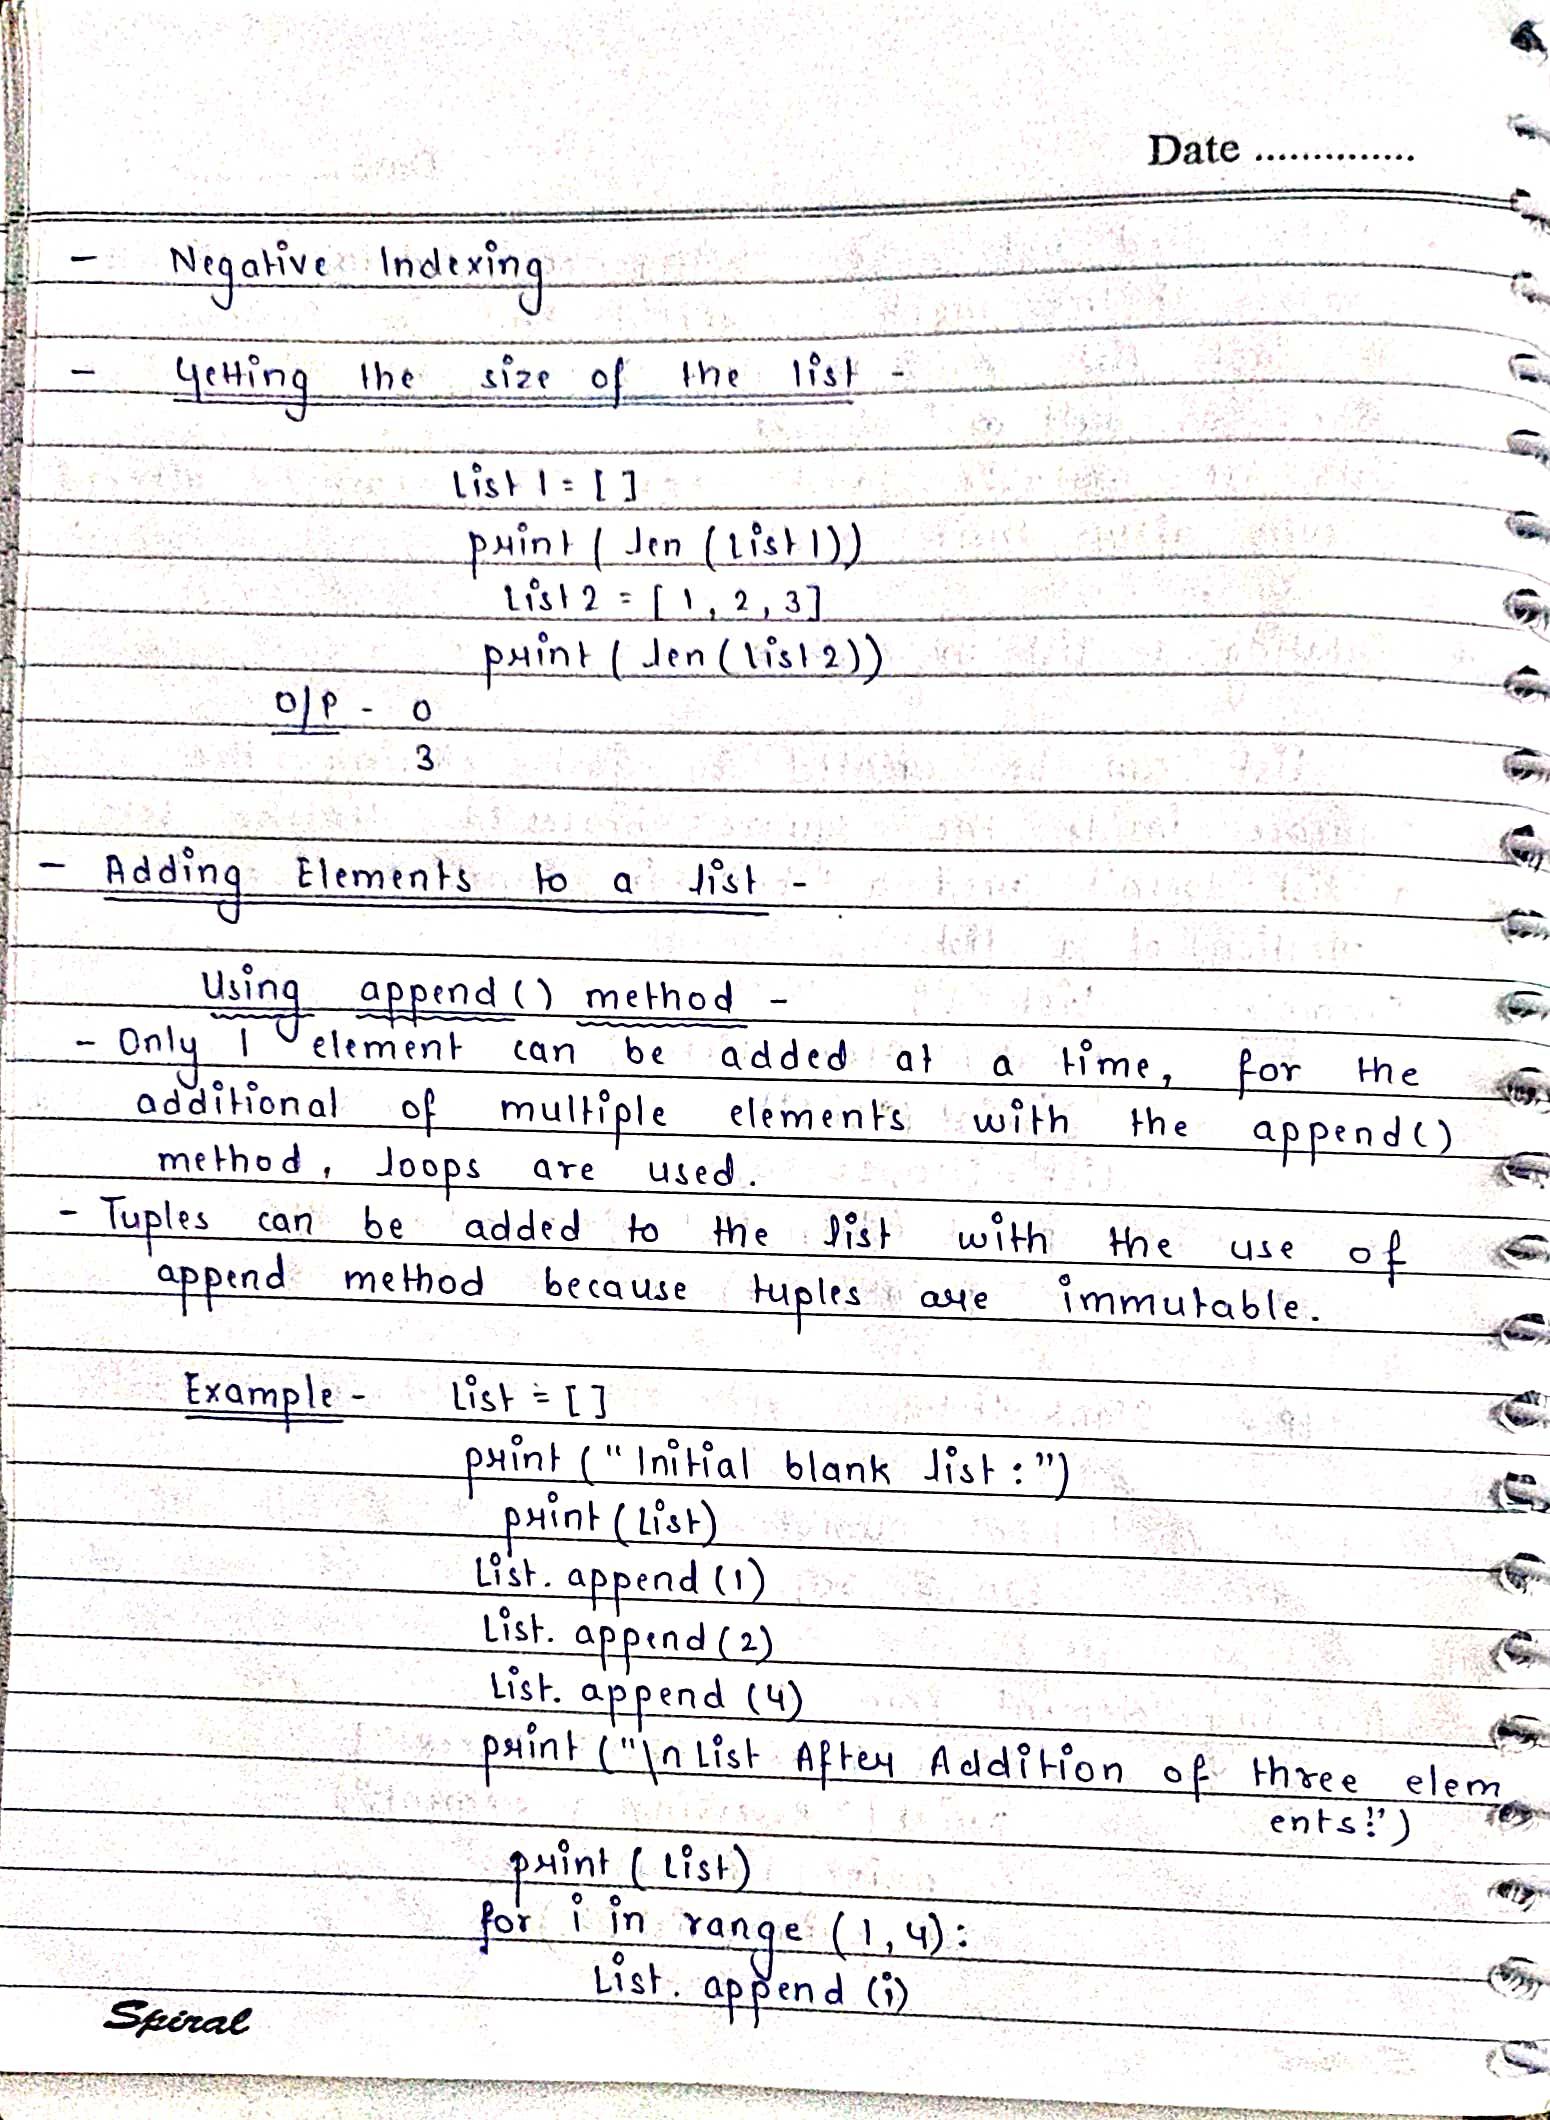 Date ..............
- Negative Indexing
- Getting the size of the list -
List 1 = [ ]
print ( len ( List 1))
List 2 = [ 1, 2, 3]
print ( len ( list 2))
O/P - 0
3
- Adding Elements to a list -
Using append () method -
- Only 1 element can be added at a time, for the
additional of multiple elements with the append()
method, loops are used.
- Tuples can be added to the list with the use of
append method because tuples are immutable.
Example - List = [ ]
print (" Initial blank list : ")
print (List)
List. append (1)
List. append (2)
List. append (4)
print ("\n List After Addition of three elem
ents:")
print ( List)
for i in range (1, 4):
List. append (i)
Spiral